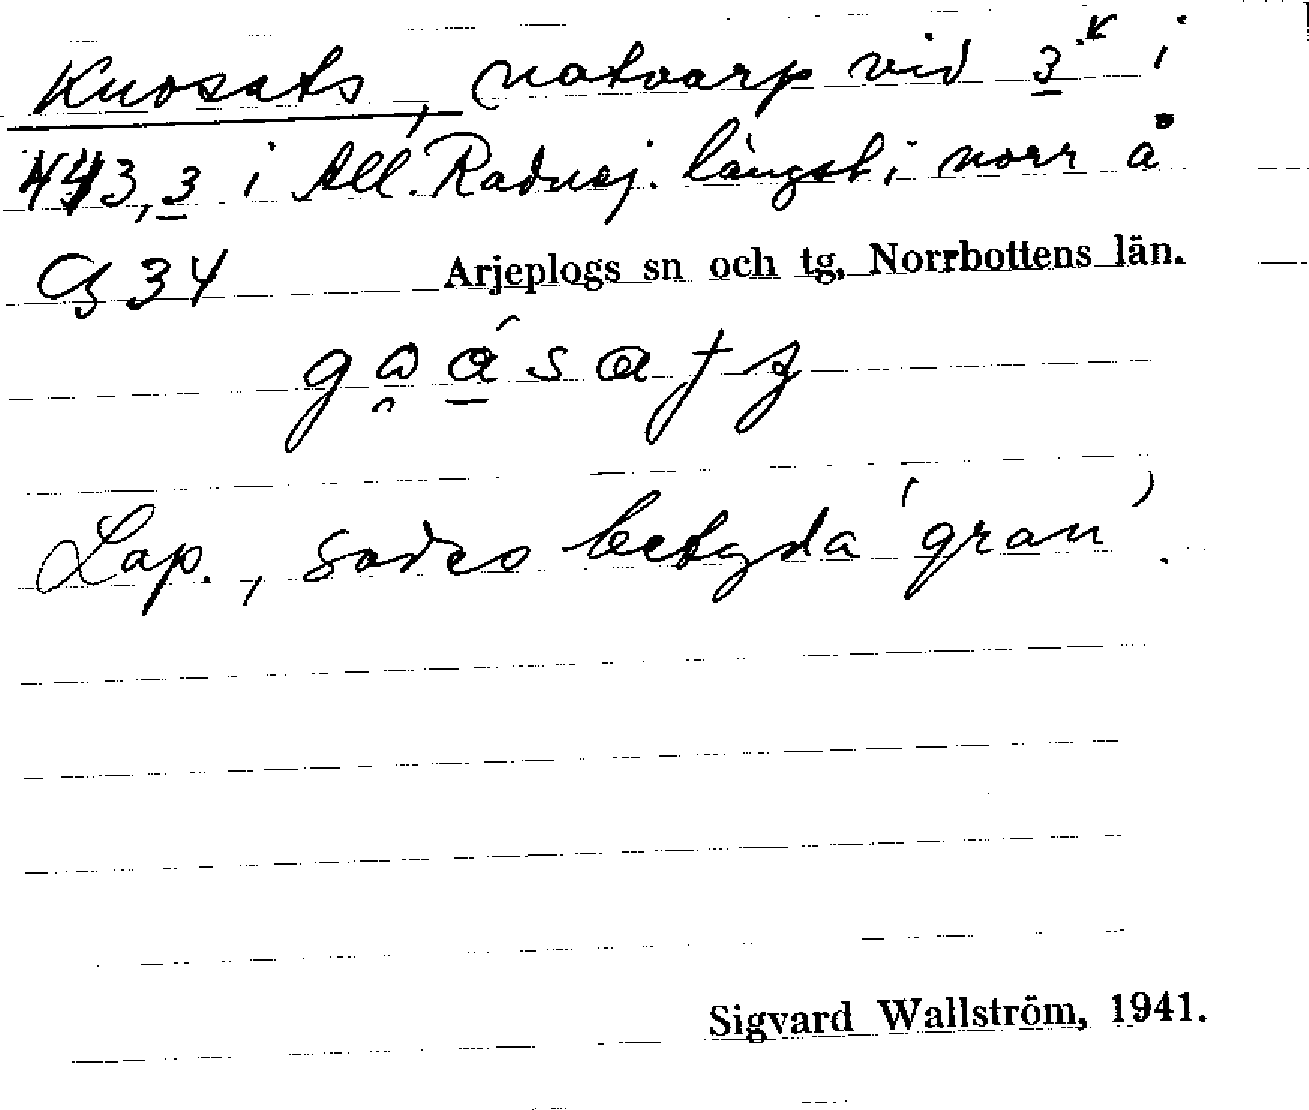 Kuosats, notvarp vid 3 k i
443,3 i All. Radnej. längst i norr å
G 34 Arjeplogs sn och tg, Norrbottens län.
Lap., sades betyda 'gran'.
Sigvard Wallström, 1941.